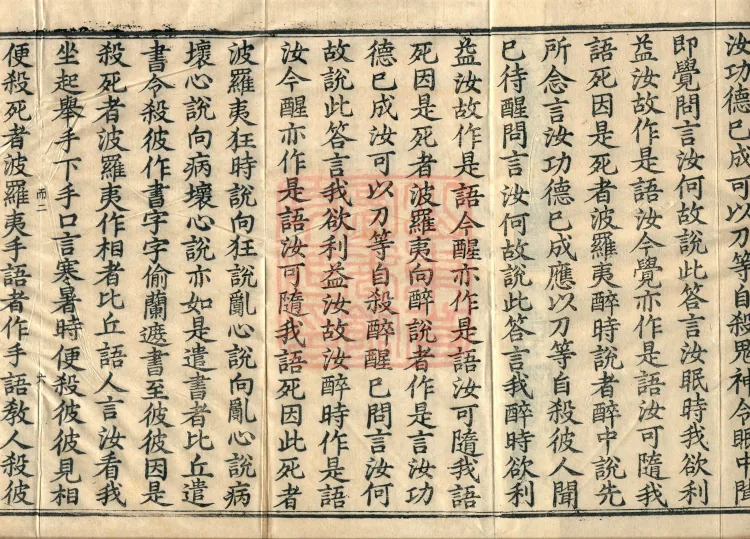 汝功德已成可以刀等自殺鬼神令眠中聞
即覺問言汝何故說此答言汝眠時我欲利
益汝故作是語汝今覺亦作是語汝可隨我
語死因是死者波羅夷醉時說者醉中說先
所念言汝功德已成應以刀等自殺彼人聞
已待醒問言汝何故說此答言我醉時欲利
益汝故作是語今醒亦作是語汝可隨我語
死因是死者波羅夷向醉說者作是言汝功
德已成汝可以刀等自殺醉醒已問言汝何
故說此答言我欲利益汝故汝醉時作是語
汝今醒亦作是語汝可隨我語死因此死者
波羅夷狂時說向狂說亂心說向亂心說病
壞心說向病壞心說亦如是遣書者比丘遣
書令殺彼作書字字偷蘭遮書至彼彼因是
殺死者波羅夷作相者比丘語人言汝看我
而二
六
坐起舉手下手口言寒暑時便殺彼彼見相
便殺死者波羅夷手語者作手語教人殺彼